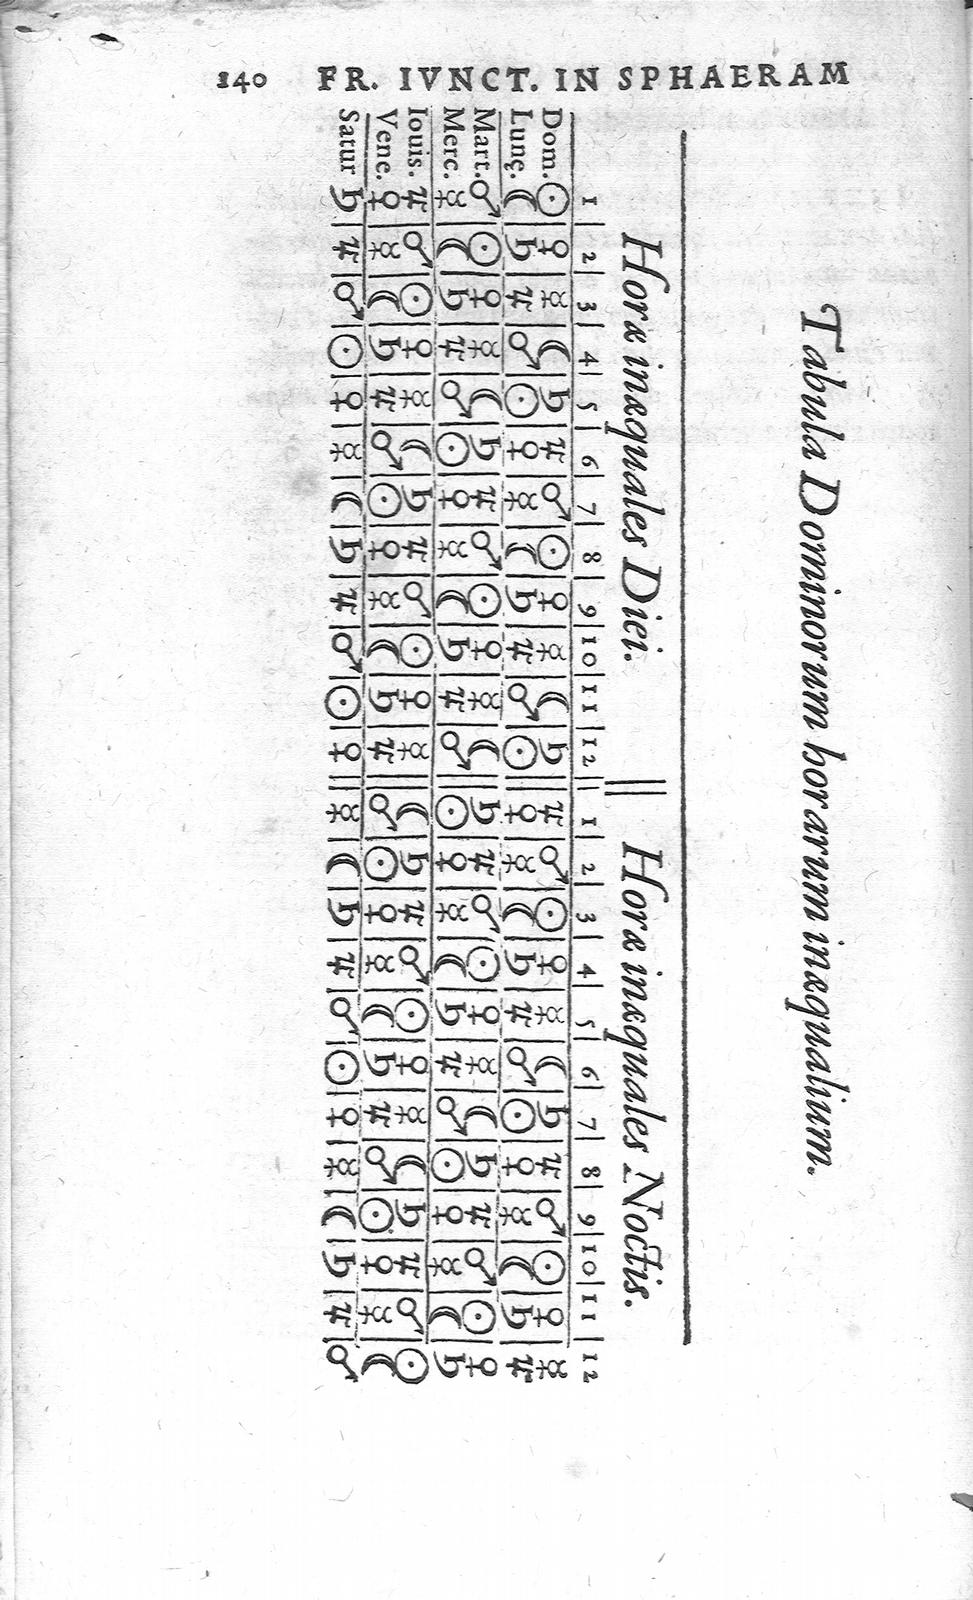 140 FR. IVNCT. IN SPHAERAM
Tabula Dominorum horarum inæqualium.
Horæ inæquales Diei. Horæ inæquales Noctis.
1 2 3 4 5 6 7 8 9 10 11 12 1 2 3 4 5 6 7 8 9 10 11 12
Dom. ☉ ♀ ☿ ☽ ♄ ♃ ♂ ☉ ♀ ☿ ☽ ♄ ♃ ♂ ☉ ♀ ☿ ☽ ♄ ♃ ♂ ☉ ♀ ☿
Lunę. ☽ ♄ ♃ ♂ ☉ ♀ ☿ ☽ ♄ ♃ ♂ ☉ ♀ ☿ ☽ ♄ ♃ ♂ ☉ ♀ ☿ ☽ ♄ ♃
Mart. ♂ ☉ ♀ ☿ ☽ ♄ ♃ ♂ ☉ ♀ ☿ ☽ ♄ ♃ ♂ ☉ ♀ ☿ ☽ ♄ ♃ ♂ ☉ ♀
Merc. ☿ ☽ ♄ ♃ ♂ ☉ ♀ ☿ ☽ ♄ ♃ ♂ ☉ ♀ ☿ ☽ ♄ ♃ ♂ ☉ ♀ ☿ ☽ ♄
Iouis. ♃ ♂ ☉ ♀ ☿ ☽ ♄ ♃ ♂ ☉ ♀ ☿ ☽ ♄ ♃ ♂ ☉ ♀ ☿ ☽ ♄ ♃ ♂ ☉
Vene. ♀ ☿ ☽ ♄ ♃ ♂ ☉ ♀ ☿ ☽ ♄ ♃ ♂ ☉ ♀ ☿ ☽ ♄ ♃ ♂ ☉ ♀ ☿ ☽
Satur ♄ ♃ ♂ ☉ ♀ ☿ ☽ ♄ ♃ ♂ ☉ ♀ ☿ ☽ ♄ ♃ ♂ ☉ ♀ ☿ ☽ ♄ ♃ ♂